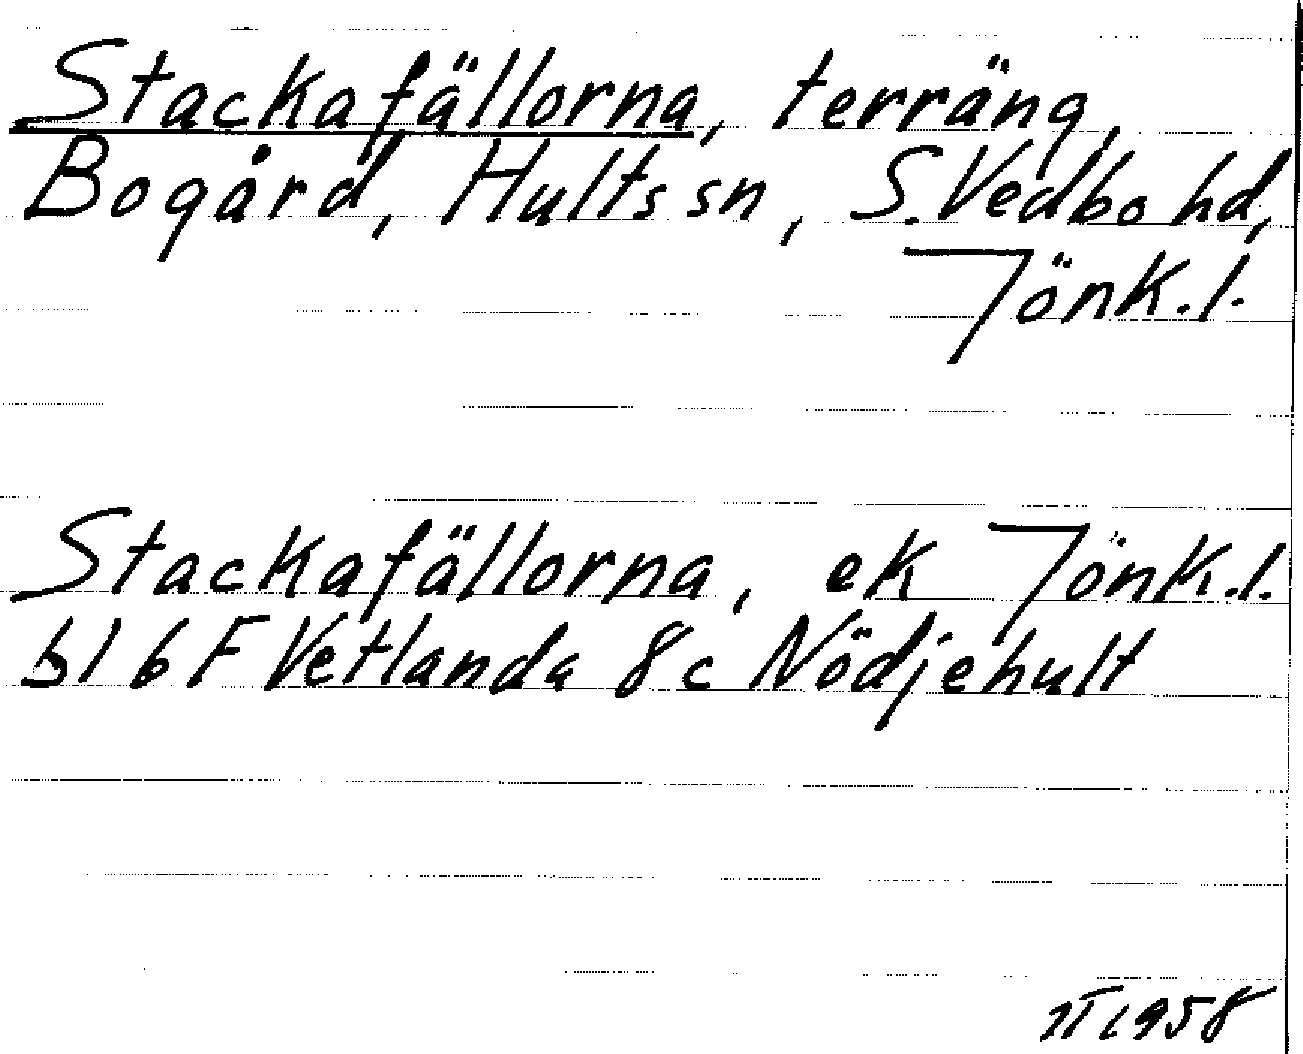 Stackafällorna, terräng,
Bogård, Hults sn, S. Vedbo hd,
Jönk. l.
Stackafällorna, ek Jönk. l.
bl 6 F Vetlanda 8 c Nödjehult
1958